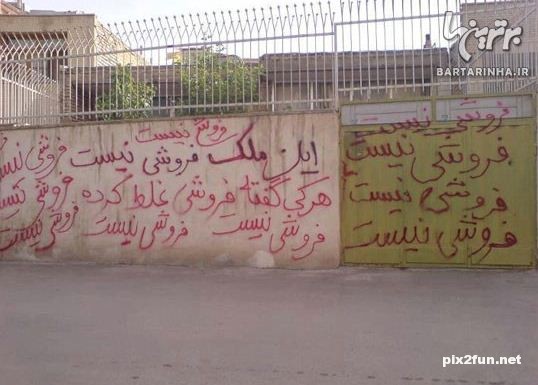 برترینها
BARTARINHA.IR
فروشی نیست
این ملک فروشی نیست فروشی نیست
هرکی گفته فروشی غلط کرده فروشی نیست
فروشی نیست فروشی نیست فروشی نیست
فروشی نیست
فروشی نیست
فروشی نیست
فروشی نیست
pix2fun.net